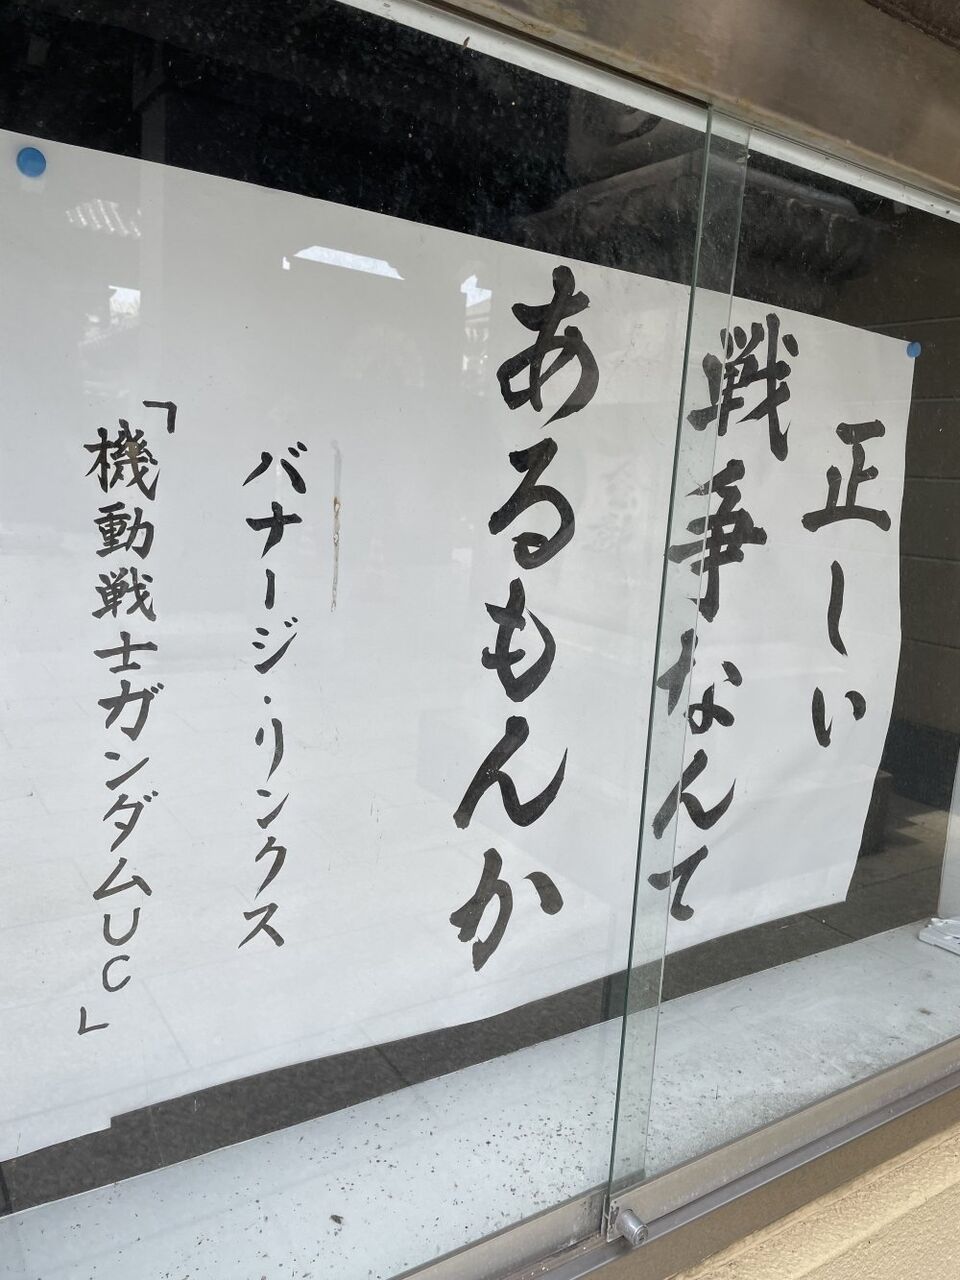 正しい
戦争なんて
あるもんか
バナージ・リンクス
「機動戦士ガンダムUC」